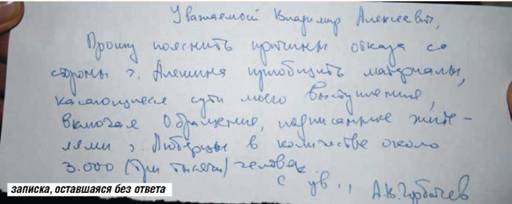 Уважаемый Владимир Алексеевич,
Прошу пояснить причины отказа со
стороны г. Алешина приобщить материалы,
касающиеся сути моего выступления,
включая обращение, подписанное жите-
лями г. Люберцы в количестве около
3.000 (три тысячи) человек
С ув., А.В. Горбачев
записка, оставшаяся без ответа